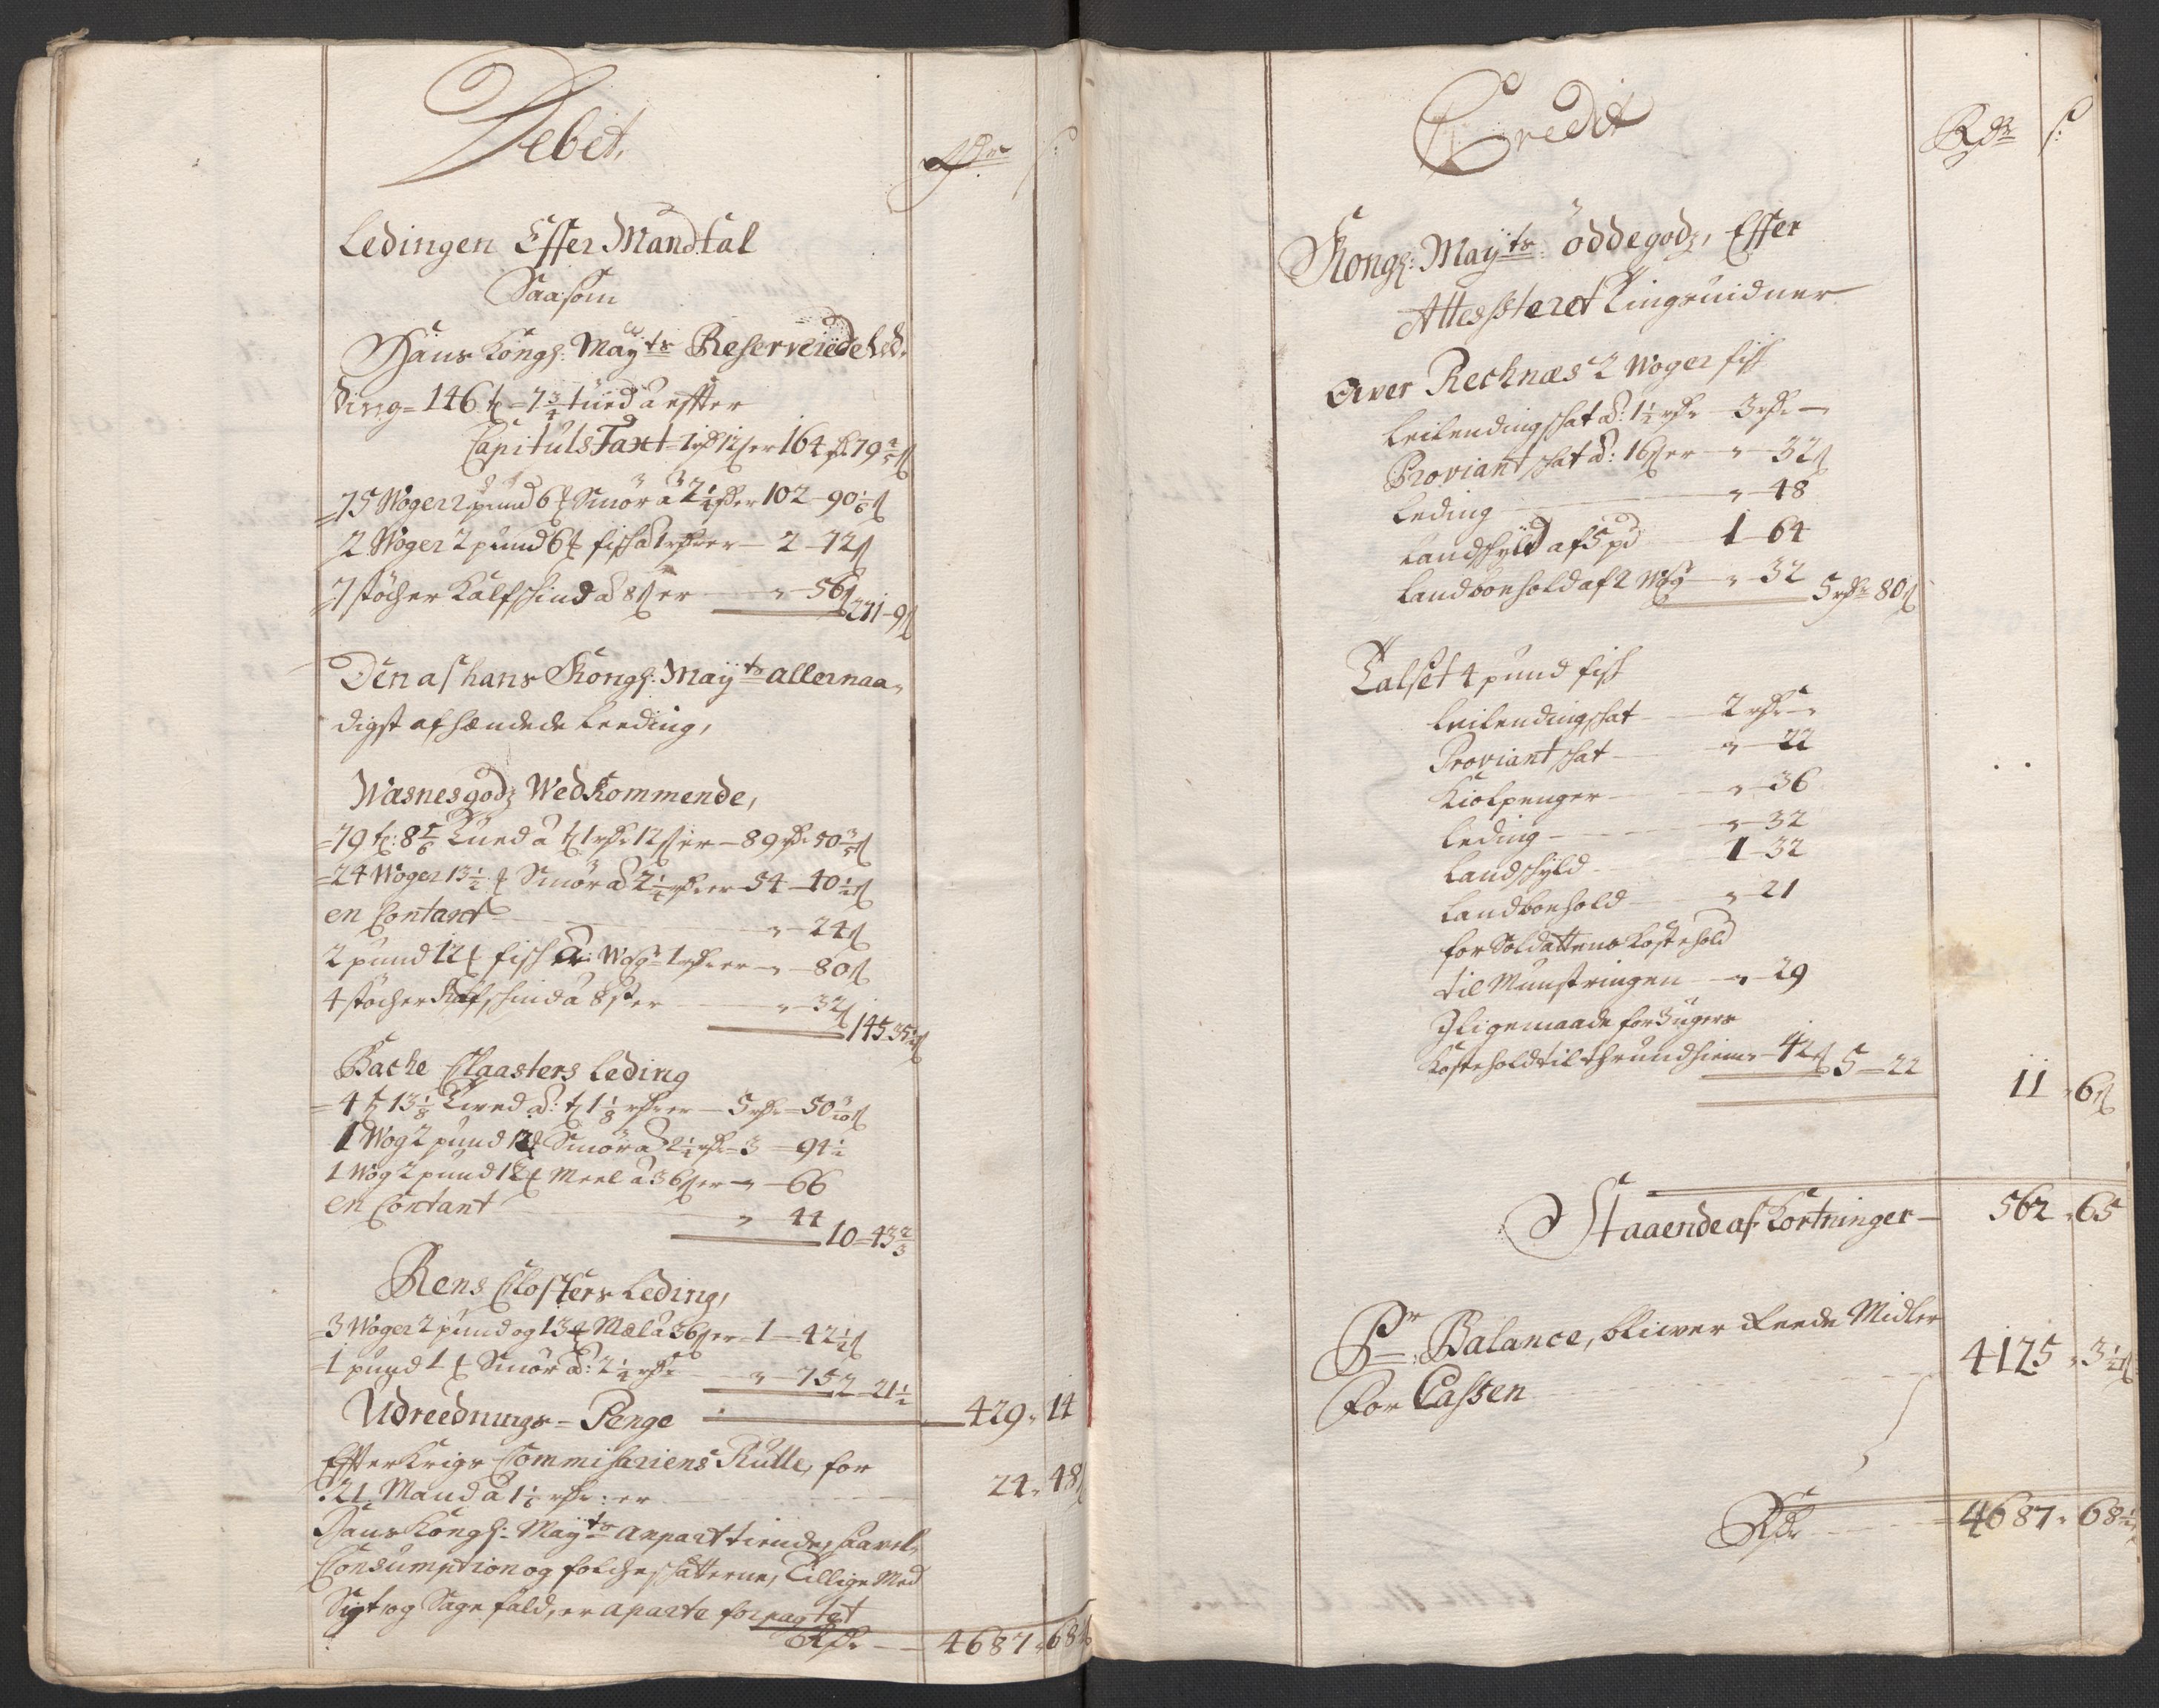 Debet,
Rdr ß:
Ledingen Effter Mandtal
Saasom
Hans Kongl: Mayts Reserverede Led-
ding = 146 t = 7 3/4 tued a effter
Capituls Taxt 1 rdr 12 ß er 164 rdr 79 2/5 ß
= 45 Woger 2 pund 6 ℔ Smör a 2 1/4 rdr er 102 - 90 1/6 ß
2 Woger 2 pund 6 ℔ fisch a 1 rdr er - 2 - 72 ß
7 stöcher Kalfschind a 8 ß er - " - 56 ß
271 - 9 ß
Den af hans Kongl: Mayts allernaa-
digst afhændede Leeding,
Wæsnesgodz Wedkommende,
= 79 t: 8 5/6 Tued a t 1 rdr 12 ß er - 89 rdr 50 3/5 ß
= 24 Woger 13 1/2 ℔ Smör a 2 1/4 rdr er 54 - 40 1/2 ß
en Contant - " - 24 ß
2 pund 12 ℔ fisch a: Wog 1 rdr er - " - 80 ß
4 stöcher Kalfschind a 8 ß er - " - 32 ß
145 - 35 1/2 ß
Bache Claasters Leding
= 4 t 13 1/8 Tued a: t 1 1/8 rdr er - 5 rdr = 50 3/10 ß
1 Wog 2 pund 12 ℔ Smör a 2 1/4 rdr = 3 = 94 1/2
1 Wog 2 pund 12 ℔ Meel a 36 ß er - " - 66
en Contant " 44
10 - 43 2/3
Rens Closters Leding,
= 3 Woger 2 pund og 13 ℔ Mæl a 36 ß er - 1 - 42 1/2 ß
= 1 pund 1 ℔ Smör a: 2 1/4 rdr - " - 75
2 - 21 1/2
429 " 14
Udreednings = Penge
Effter Krigs Commisariens Rulle, for
21 Mand a 1 1/6 rdr: er 24 " 48 ß
Hans Kongl: Mayts anpart tiende, saavel
Consumption og folcheschatterne, Tillige Med
Sigt og Sagefald, er aparte forpagtet
Rdr - 4687 " 68 1/2
Credit
Rdr ß:
Kongl: Mayts: öddegodz, Effter
Attesteret Tingsuidner
Over Rechnæs 2 Woger fisk
Leilendingschat a: 1 1/2 rdr - 3 rdr -
Proviantschat a: 16 ß er - " - 32 ß
Leding " - 48
Landschyld af 5 pd 1 - 64
Landboehold af 2 Wog - " - 32
5 rdr 80 ß
Talset 4 pund fisk
Leilendingschat 2 rdr - "
Proviantschat " - 22
Kiolpenger " - 36
Leding " - 32
Landschyld 1 - 32
Landboehold " - 21
for Soldattens Kostehold
til Munstringen - " - 29
Iligemaade for
Kostehold til thrundhiem - 42 ß 5 - 22
11 " 6 ß
Staaende afkortninger - 562 " 65
Pr: Balance, bliver Reede Midler
for Cassen 4125 " 3 1/2 ß
Rdr = 4687 " 68 1/2